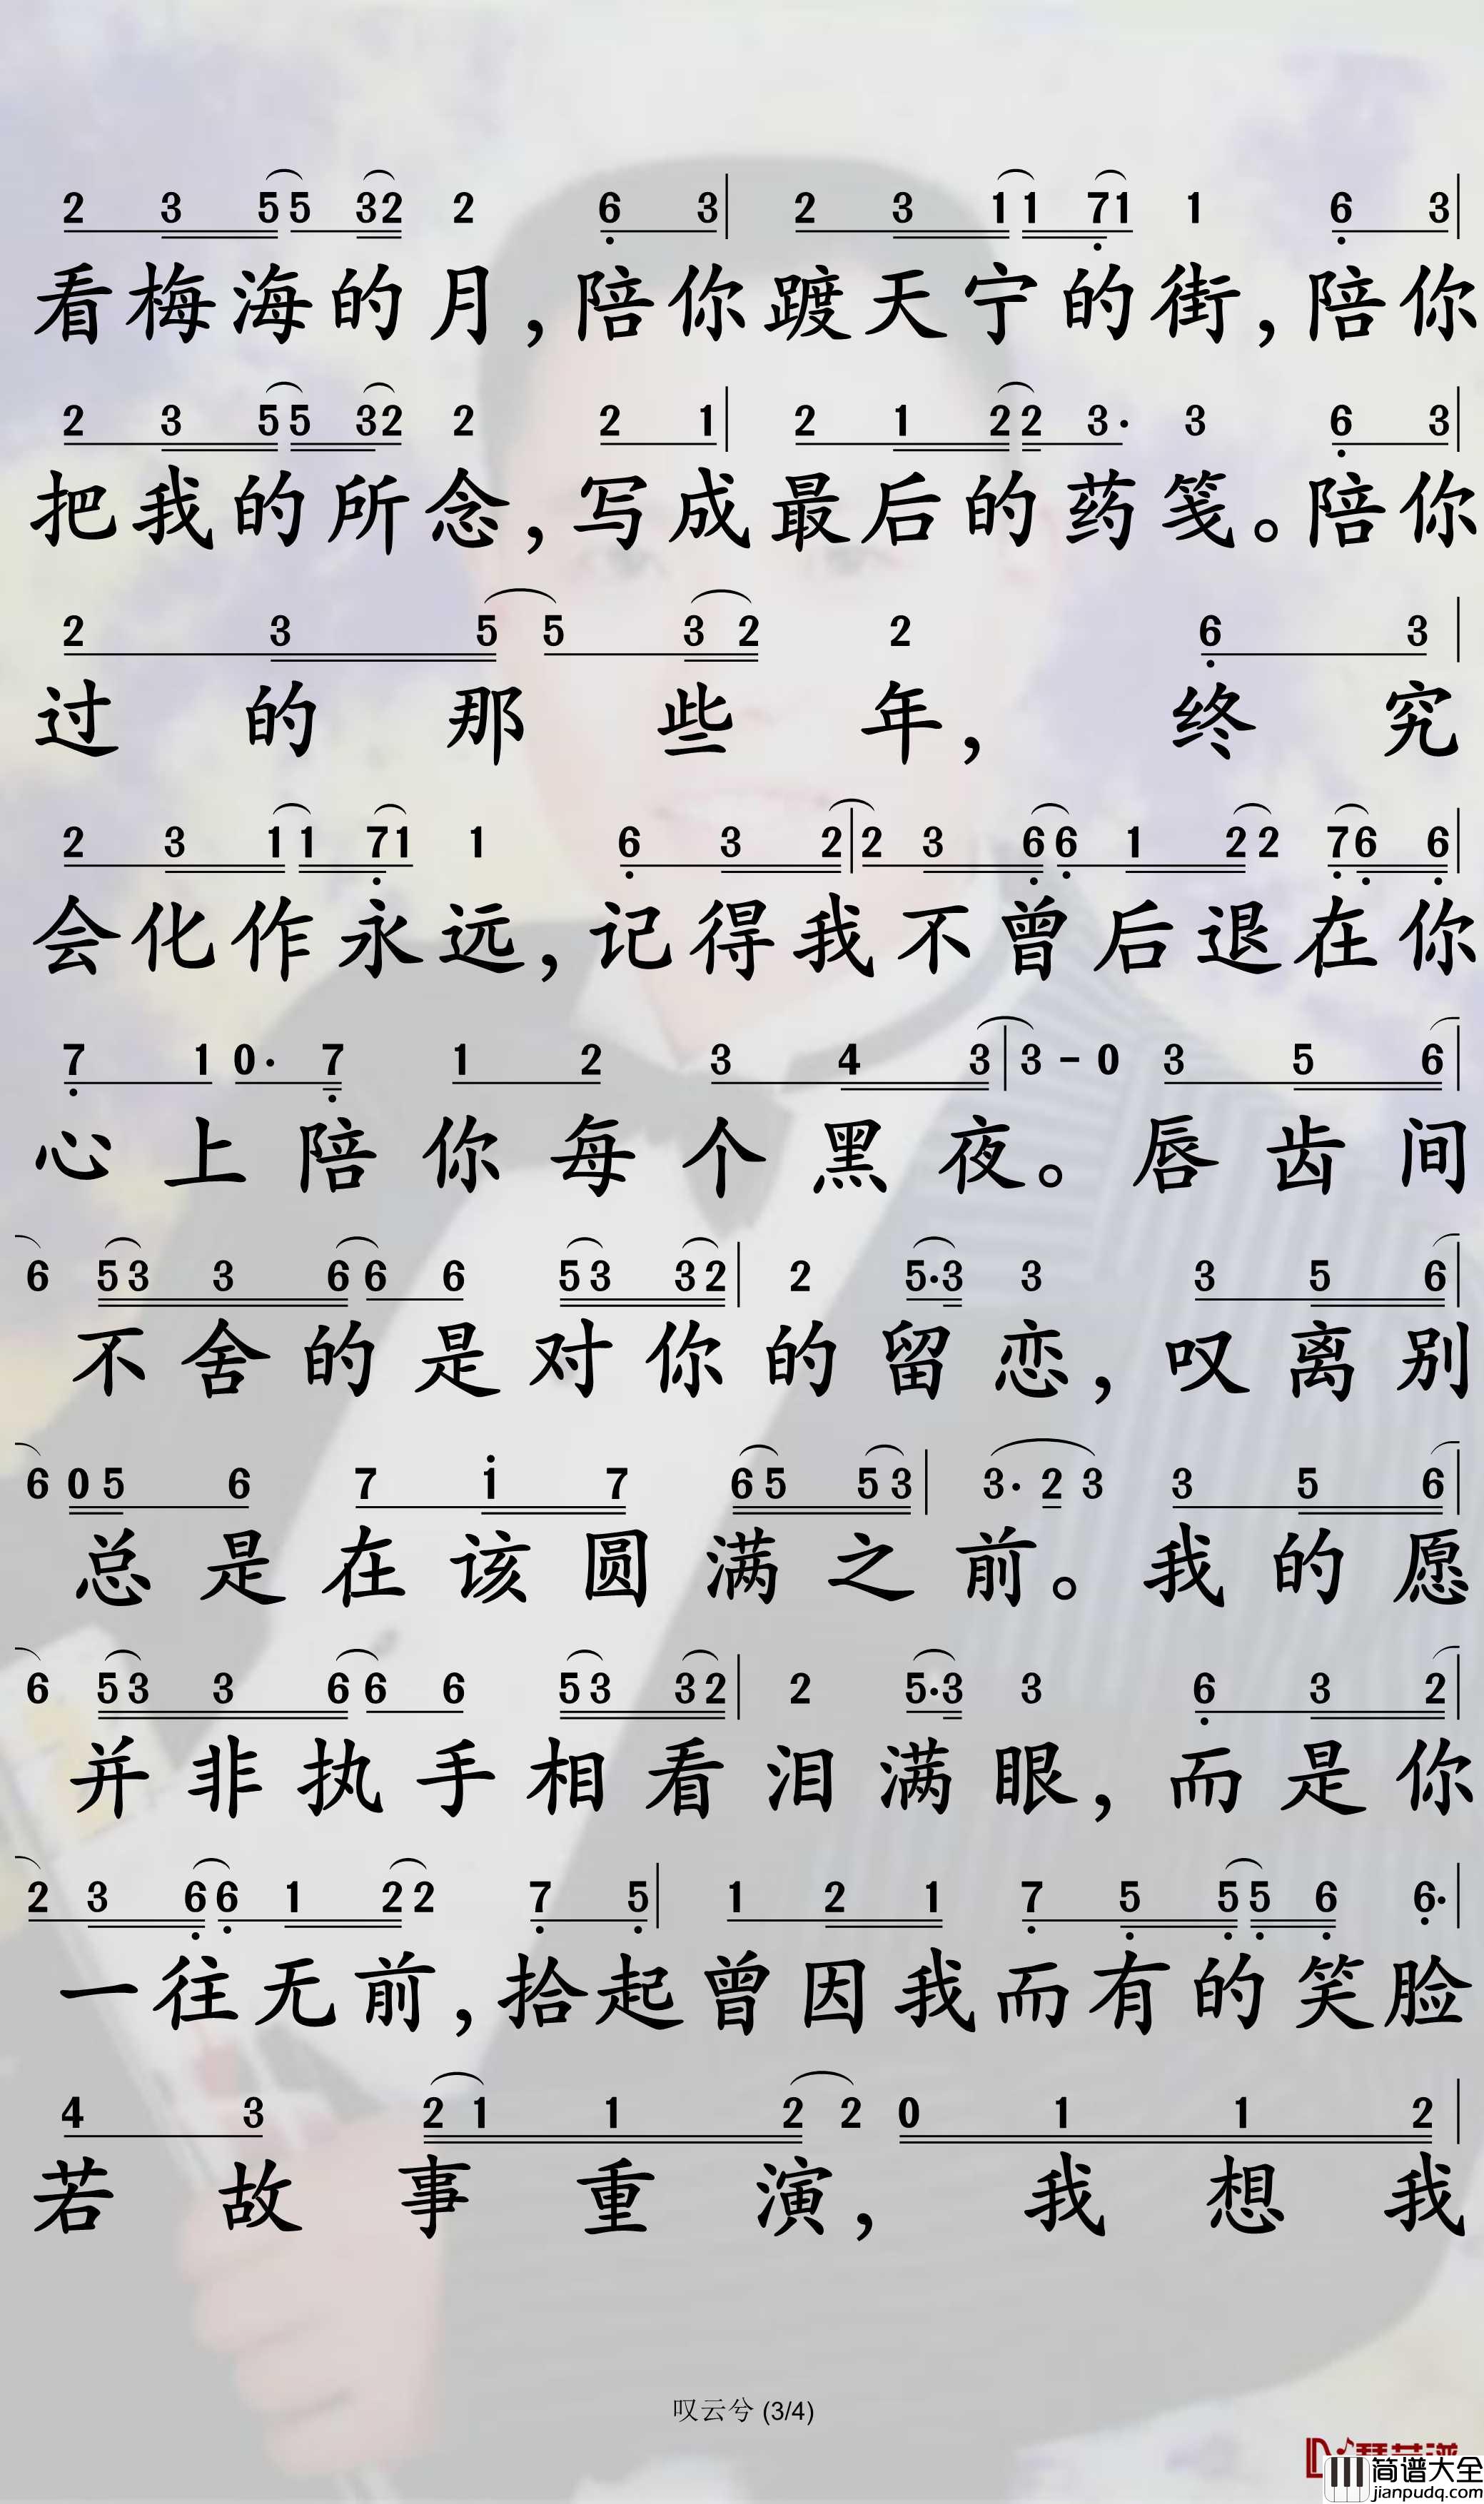 2 3 5 5 3 2 2 6 3 | 2 3 1 1 7 1 1 6 3 |
看梅海的月,陪你踱天宁的街,陪你
2 3 5 5 3 2 2 2 1 | 2 1 2 2 3· 3 6 3 |
把我的所念,写成最后的药笺。陪你
2 3 5 5 3 2 2 6 3 |
过的那些年,终究
2 3 1 1 7 1 1 6 3 2 | 2 3 6 6 1 2 2 7 6 6 |
会化作永远,记得我不曾后退在你
7 1 0· 7 1 2 3 4 3 | 3 - 0 3 5 6 |
心上陪你每个黑夜。唇齿间
6 5 3 3 6 6 6 5 3 3 2 | 2 5·3 3 3 5 6 |
不舍的是对你的留恋,叹离别
6 0 5 6 7 i 7 6 5 5 3 | 3· 2 3 3 5 6 |
总是在该圆满之前。我的愿
6 5 3 3 6 6 6 5 3 3 2 | 2 5·3 3 6 3 2 |
并非执手相看泪满眼,而是你
2 3 6 6 1 2 2 7 5 | 1 2 1 7 5 5 5 6 6· |
一往无前,拾起曾因我而有的笑脸
4 3 2 1 1 2 2 0 1 1 2 |
若故事重演,我想我
叹云兮 (3/4)
简谱大全
jianpudq.com